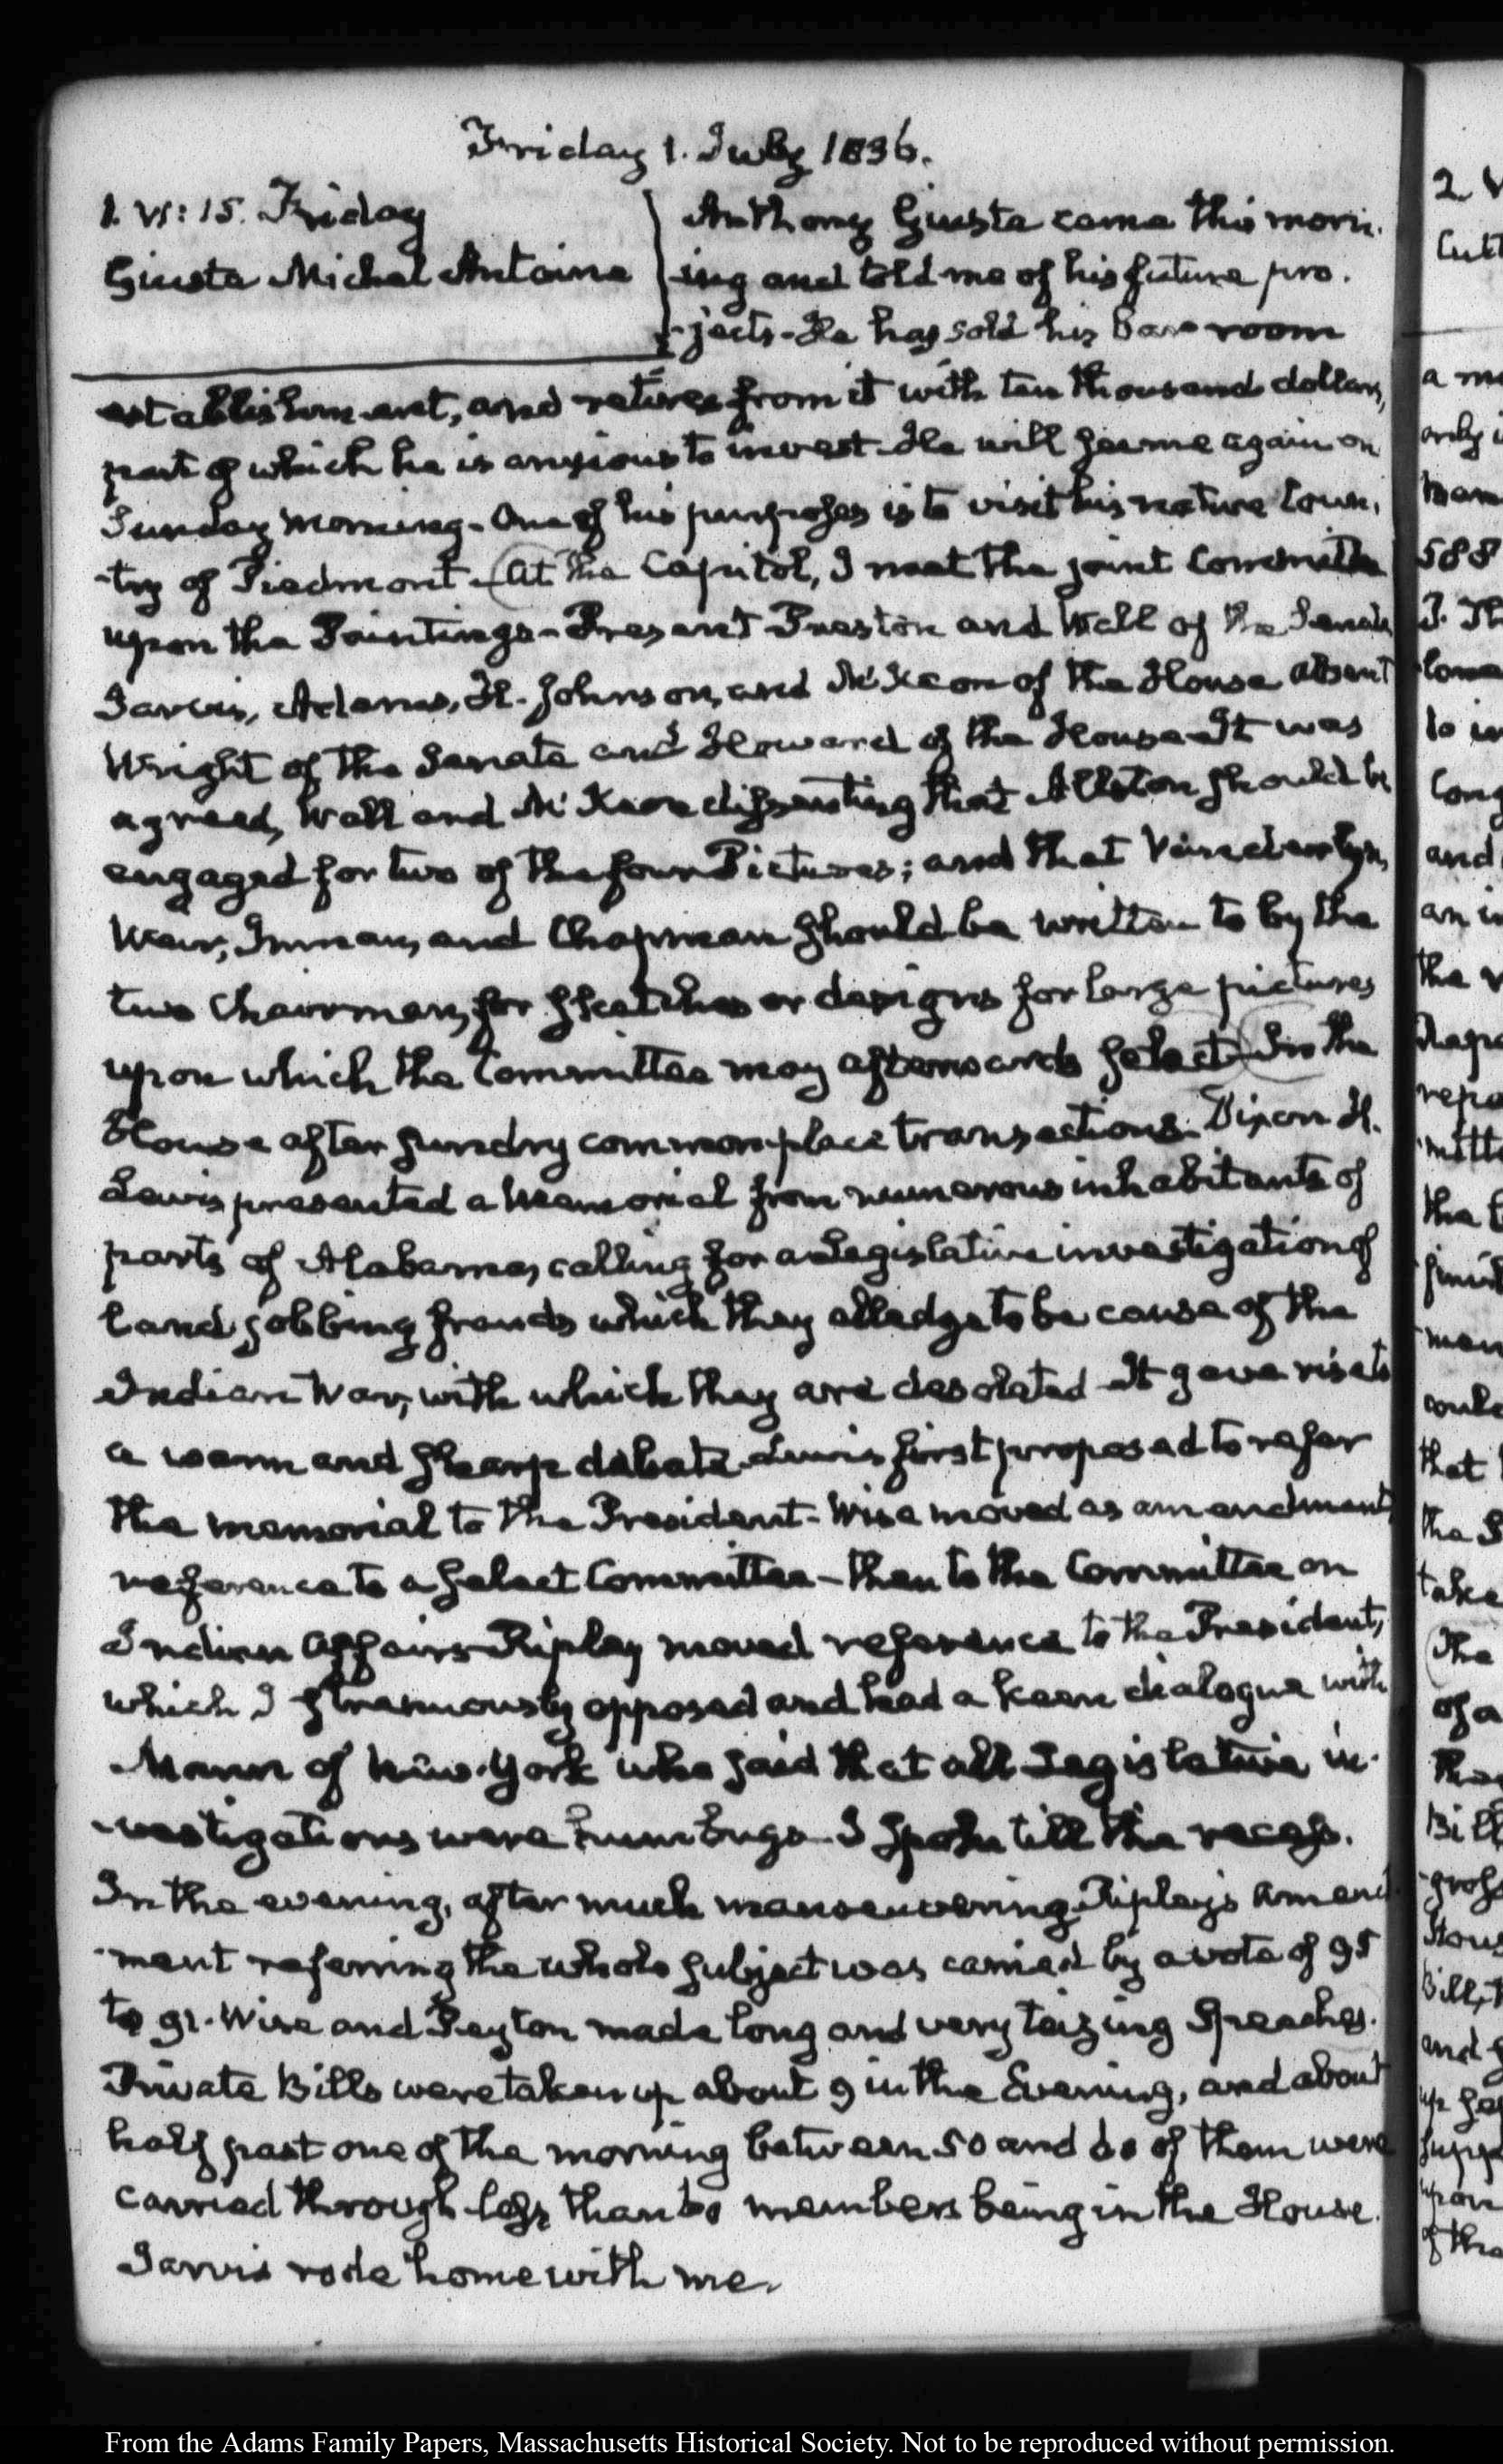 Friday 1. July 1836.
1. VI:15. Friday
Giusta Michel Antoine
Anthony Giusta came this morn-
ing and told me of his future pro-
jects- He has sold his Bar room
establishment, and retires from it with ten thousand dollars,
part of which he is anxious to invest- He will see me again on
Sunday morning- One of his purposes is to visit his native Coun-
-try of Piedmont- At the Capitol, I meet the joint Committee
upon the Paintings- Present Preston and Wall of the Senate
Jarvis, Adams, H. Johnson, and McKeon of the House absent
Wright of the Senate and Howard of the House- It was
agreed, Wall and McKeon dissenting that Allston should be
engaged for two of the four Pictures; and that Vanderlyn,
Weir, Inman, and Chapman should be written to by the
two Chairmen, for sketches or designs for large pictures
upon which the Committee may afterwards select- In the
House after sundry common place transactions. Dixon H.
Lewis presented a Memorial from numerous inhabitants of
parts of Alabama, calling for a Legislative investigation of
land jobbing frauds which they alledge to be cause of the
Indian War, with which they are desolated- It gave rise to
a warm and sharp debate- Lewis first proposed to refer
the memorial to the President- Wise moved as amendment,
reference to a select Committee- then to the Committee on
Indian Affairs- Ripley moved reference to the President,
which I strenuously opposed and had a keen dialogue with
Mann of New-York who said that all Legislative in-
-vestigations were humbugs- I spoke till the recess.
In the evening, after much manoeuvering, Ripley's amend-
-ment referring the whole subject was carried by a vote of 95
to 91. Wise and Peyton made long and very teizing Speeches.
Private Bills were taken up about 9 in the Evening, and about
half past one of the morning between 50 and 60 of them were
carried through less than 60 members being in the House.
Jarvis rode home with me.
From the Adams Family Papers, Massachusetts Historical Society. Not to be reproduced without permission.